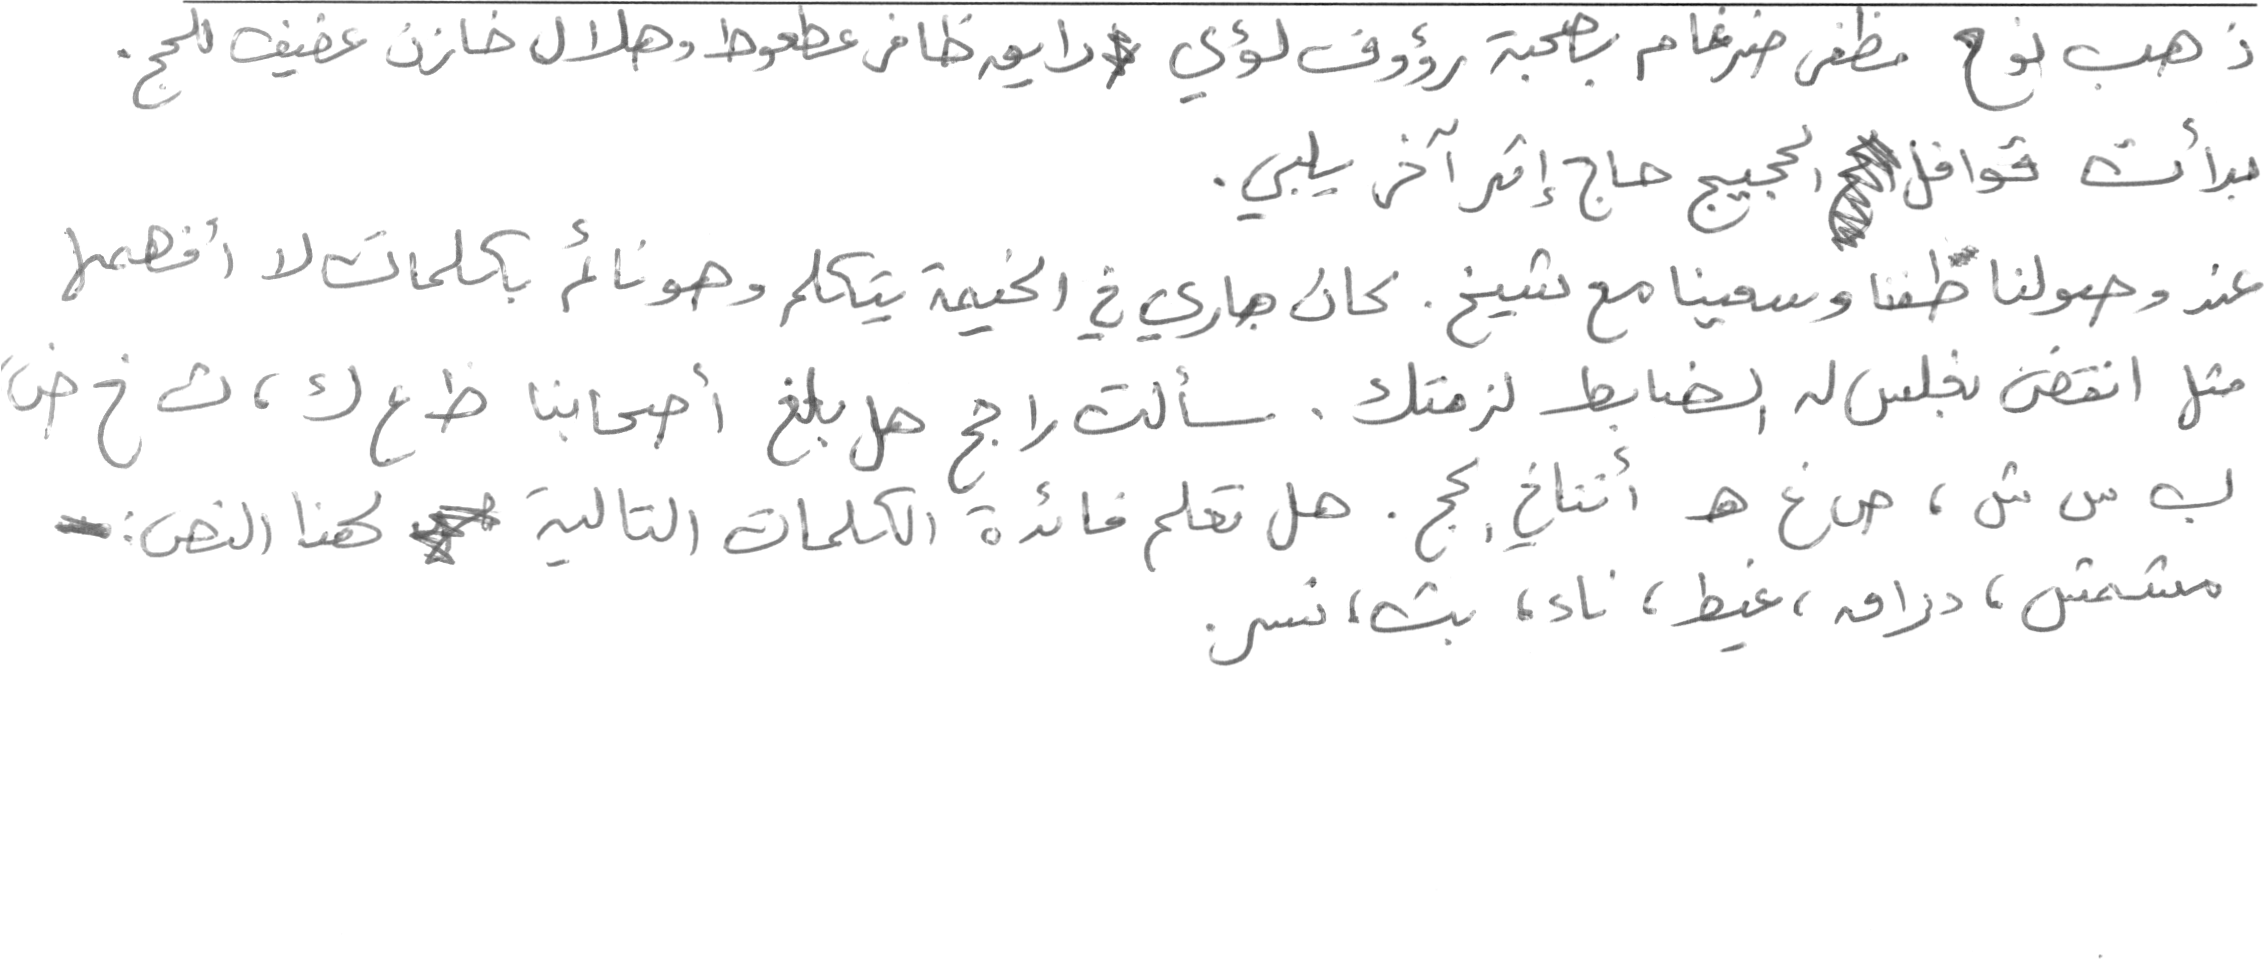 ذهب نوح مظفر ضرغام بصحبة رؤوف لؤي رايق ظافر عطعوط وهلال خازن عفيف للحج.
بدأت قوافل الحجيج حاج إثر آخر يلبي.
عند وصولنا طفنا وسعينا مع شيخ. كان جاري في الخيمة يتكلم وهو نائم بكلمات لا أفهمها
مثل انقض نجلس له الضابط لزمتك. سألت راجح هل بلغ أصحابنا ظ ع ك، ث خ ض
ب س ش، ص غ هـ أنناخ لحج. هل تعلم فائدة الكلمات التالية كهذا النص:
مشمش، دراق، غيط، ناء، بث، نسر.